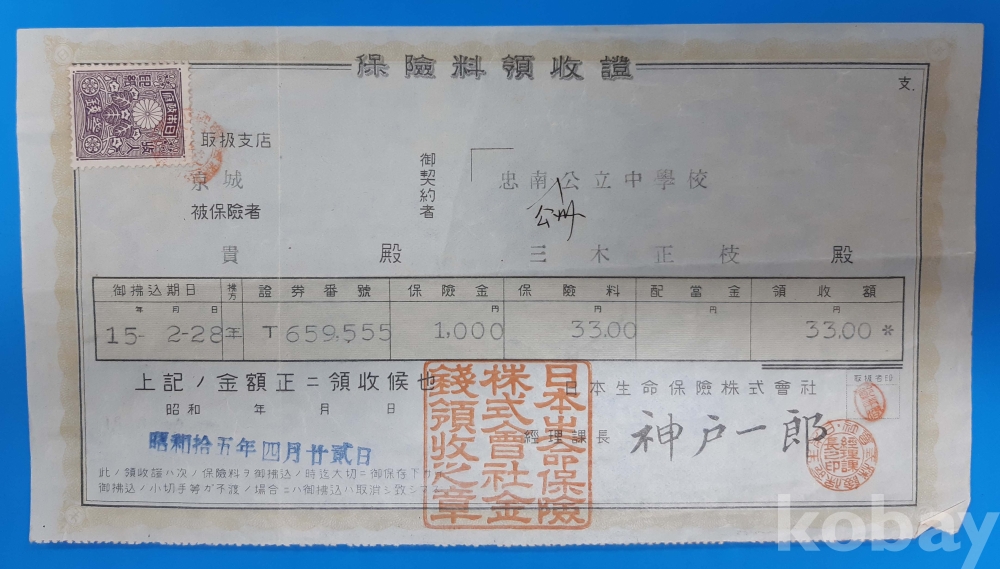 保險料領收證
支.
取扱支店
京城
御契約者
忠南公立中學校
公州
被保險者
貴 殿
三木正枝 殿
御拂込期日 拂方 證券番號 保險金 保險料 配當金 領收額
年 月 日 円 円 円 円
15- 2-28 年 T 659,555 1,000 33.00 33.00 *
上記ノ金額正ニ領收候也
日本生命保險株式會社
取扱者印
昭和 年 月 日
經理課長 神戸一郎
昭和拾五年四月廿貳日
此ノ領收證ハ次ノ保險料ヲ御拂込ノ時迄大切ニ御保存下
御拂込ノ小切手等ガ不渡ノ場合ニハ御拂込ハ取消シ致シマ
日本生命保險
株式會社金
錢領收之章
kobay